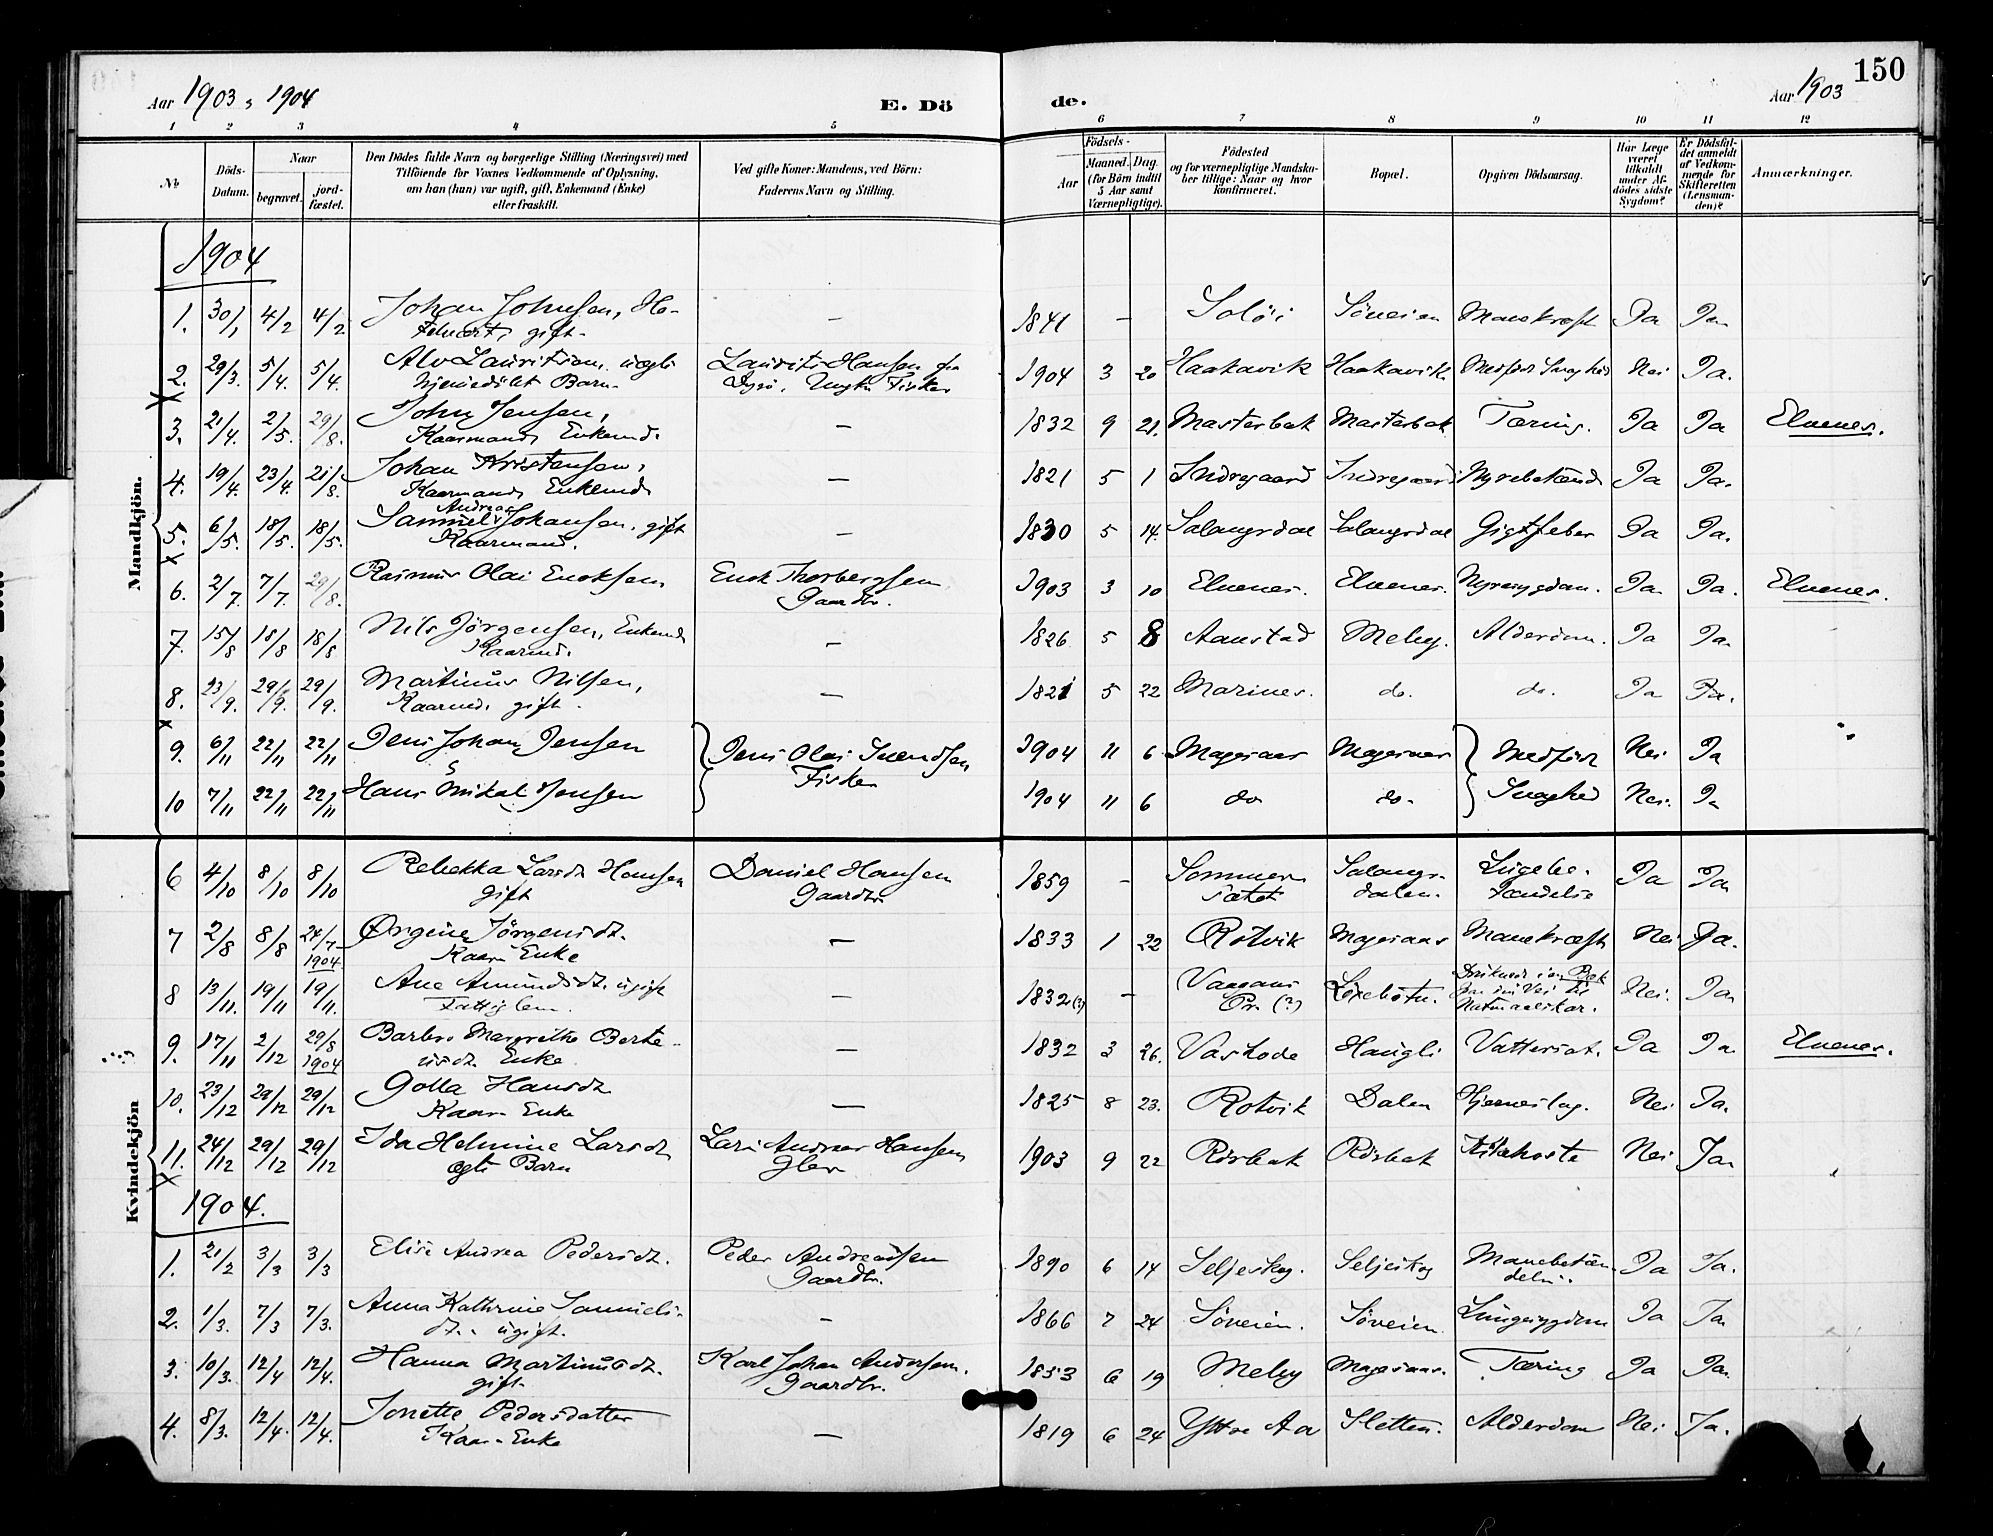 150
Aar 1903 & 1904
E. Dö
de.
Aar 1903
1 2 3 4 5 6 7 8 9 10 11 12
No
Döds-Datum.
Naar
begravet.
jord-fæstet.
Den Dödes fulde Navn og borgerlige Stilling (Næringsvei) med
Tilföiende for Voxnes Vedkommende af Oplysning,
om han (hun) var ugift, gift, Enkemand (Enke)
eller fraskilt.
Ved gifte Koner: Mandens, ved Börn:
Faderens Navn og Stilling.
Födsels-
Aar
Maaned. Dag.
(for Börn indtil
5 Aar samt
Værnepligtige).
Födested
og for værnepligtige Mandska-
ber tillige: Naar og hvor
konfirmeret.
Bopæl.
Opgiven Dödsaarsag.
Har Læge
været
tilkaldt
under Af-
dödes sidste
Sygdom?
Er Dödsfal-
det anmeldt
af Vedkom-
mende for
Skifteretten
(Lensman-
den)?
Anmærkninger.
Mandkjön.
1904
1. 30/1 4/2 4/2 Johan Johnsen, gift – 1841 – Soløi Søveien Mavekræft Ja Ja
2. 29/3. 5/4. 5/4. Alv Lauritsen, uægte
hjemmedöbt Barn. Laurits Hansen fra
Ugift Fisker 1904 3 20 Haakavik Haakavik Medfödt Svaghed Nei Ja.
3. 21/4. 2/5. 29/8. John Jensen,
Kaarmand, Enkemd. – 1832 9 21. Masterbak Masterbak Tæring. Ja Ja Elvenes.
4. 19/4. 23/4. 21/8. Johan Kristensen,
Kaarmand, Enkemd. – 1821 5 1 Indregaard Indregaard Nyrebetænd Ja Ja.
5. 6/5. 18/5. 18/5. Samuel Andreas Johansen, gift
Kaarmand. – 1830 5 14. Salangsdal Salangsdal Gigtfeber Ja Ja.
6. 2/7. 7/7. 29/8. Rasmus Olai Enoksen Enok Thorbergsen
Gaardbr. 1903 3 10 Elvenes. Elvenes. Nyresygdom. Ja Ja. Elvenes.
7. 15/8 18/8 18/8 Nils Jörgensen, Enkemd
Kaarmd. – 1826 5 8 Aanstad Meby. Alderdom. Ja Ja.
8. 23/9. 29/9. 29/9. Martinus Nilsen,
Kaarmd. gift. – 1821 5 22 Marines. do. do. Ja Ja.
9. 6/11 22/11 22/11 Jens Johan Jensen Jens Olai Svendsen
Fisker 1904 11 6. Magesaas Magesaas Medfödt Nei Ja
10 7/11 22/11 22/11 Hans Mikal Jensen 1904 11 6 do do. Svaghed Nei. Ja
Kvindekjön
6 4/10 8/10 8/10 Rebekka Larsdt. Hansen
gift Daniel Hansen
Gaardbr. 1859 – Sommer-
sætet Salangs-
dalen. Lungebe-
tændelse Ja Ja
7 2/8 8/8 24/7 1904. Ørgine Jörgensdt.
Kaar- Enke – 1833 1 22 Rotvik Magesaas Mavekræft Nei Ja.
8 13/11. 19/11 19/11. Ane Amundsdt. ugift
Fattiglem. – 1832(?) – Vaagans
Pr. (?) Løksebotn. Druknet i en Bæk
paa sin Vei til
Nei. Ja
9. 17/11 2/12 29/8 1904 Barbro Margrethe Berte-
usdt. Enke – 1832 3 26. Haugli Vattersot. Ja Ja Elvenes.
10. 23/12 29/12 29/12 Golla Hansdt
Kaar- Enke – 1825 8 23. Rotvik Dalen Hjerneslag. Nei Ja.
11. 24/12 29/12 29/12 Ida Helmine Larsdt
ægte Barn Lars Andreas Hansen
1903 9 22 Rörbak Rörbak Kikhoste Nei Ja
1904.
1. 21/2 3/3 3/3 Elise Andrea Pedersdt. Peder Andreassen
Gaardbr. 1890 6 14 Seljeskog. Seljeskog Mavebetæn-
delse. Ja Ja.
2. 1/3. 7/3 7/3. Anna Kathrine Samuels-
dt. ugift. – 1866 7 24 Søveien. Søveien Lungesygdom Ja Ja
3. 10/3. 12/4 12/4. Hanna Martinusdt.
gift. Karl Johan Andersen.
Gaardbr. 1853 6 19 Meby Magesaas. Tæring Ja Ja.
4. 8/3. 12/4. 12/4. Jonette Pedersdatter
Kaar- Enke – 1819 6 24 Yttre Aa Sletten. Alderdom Nei Ja.